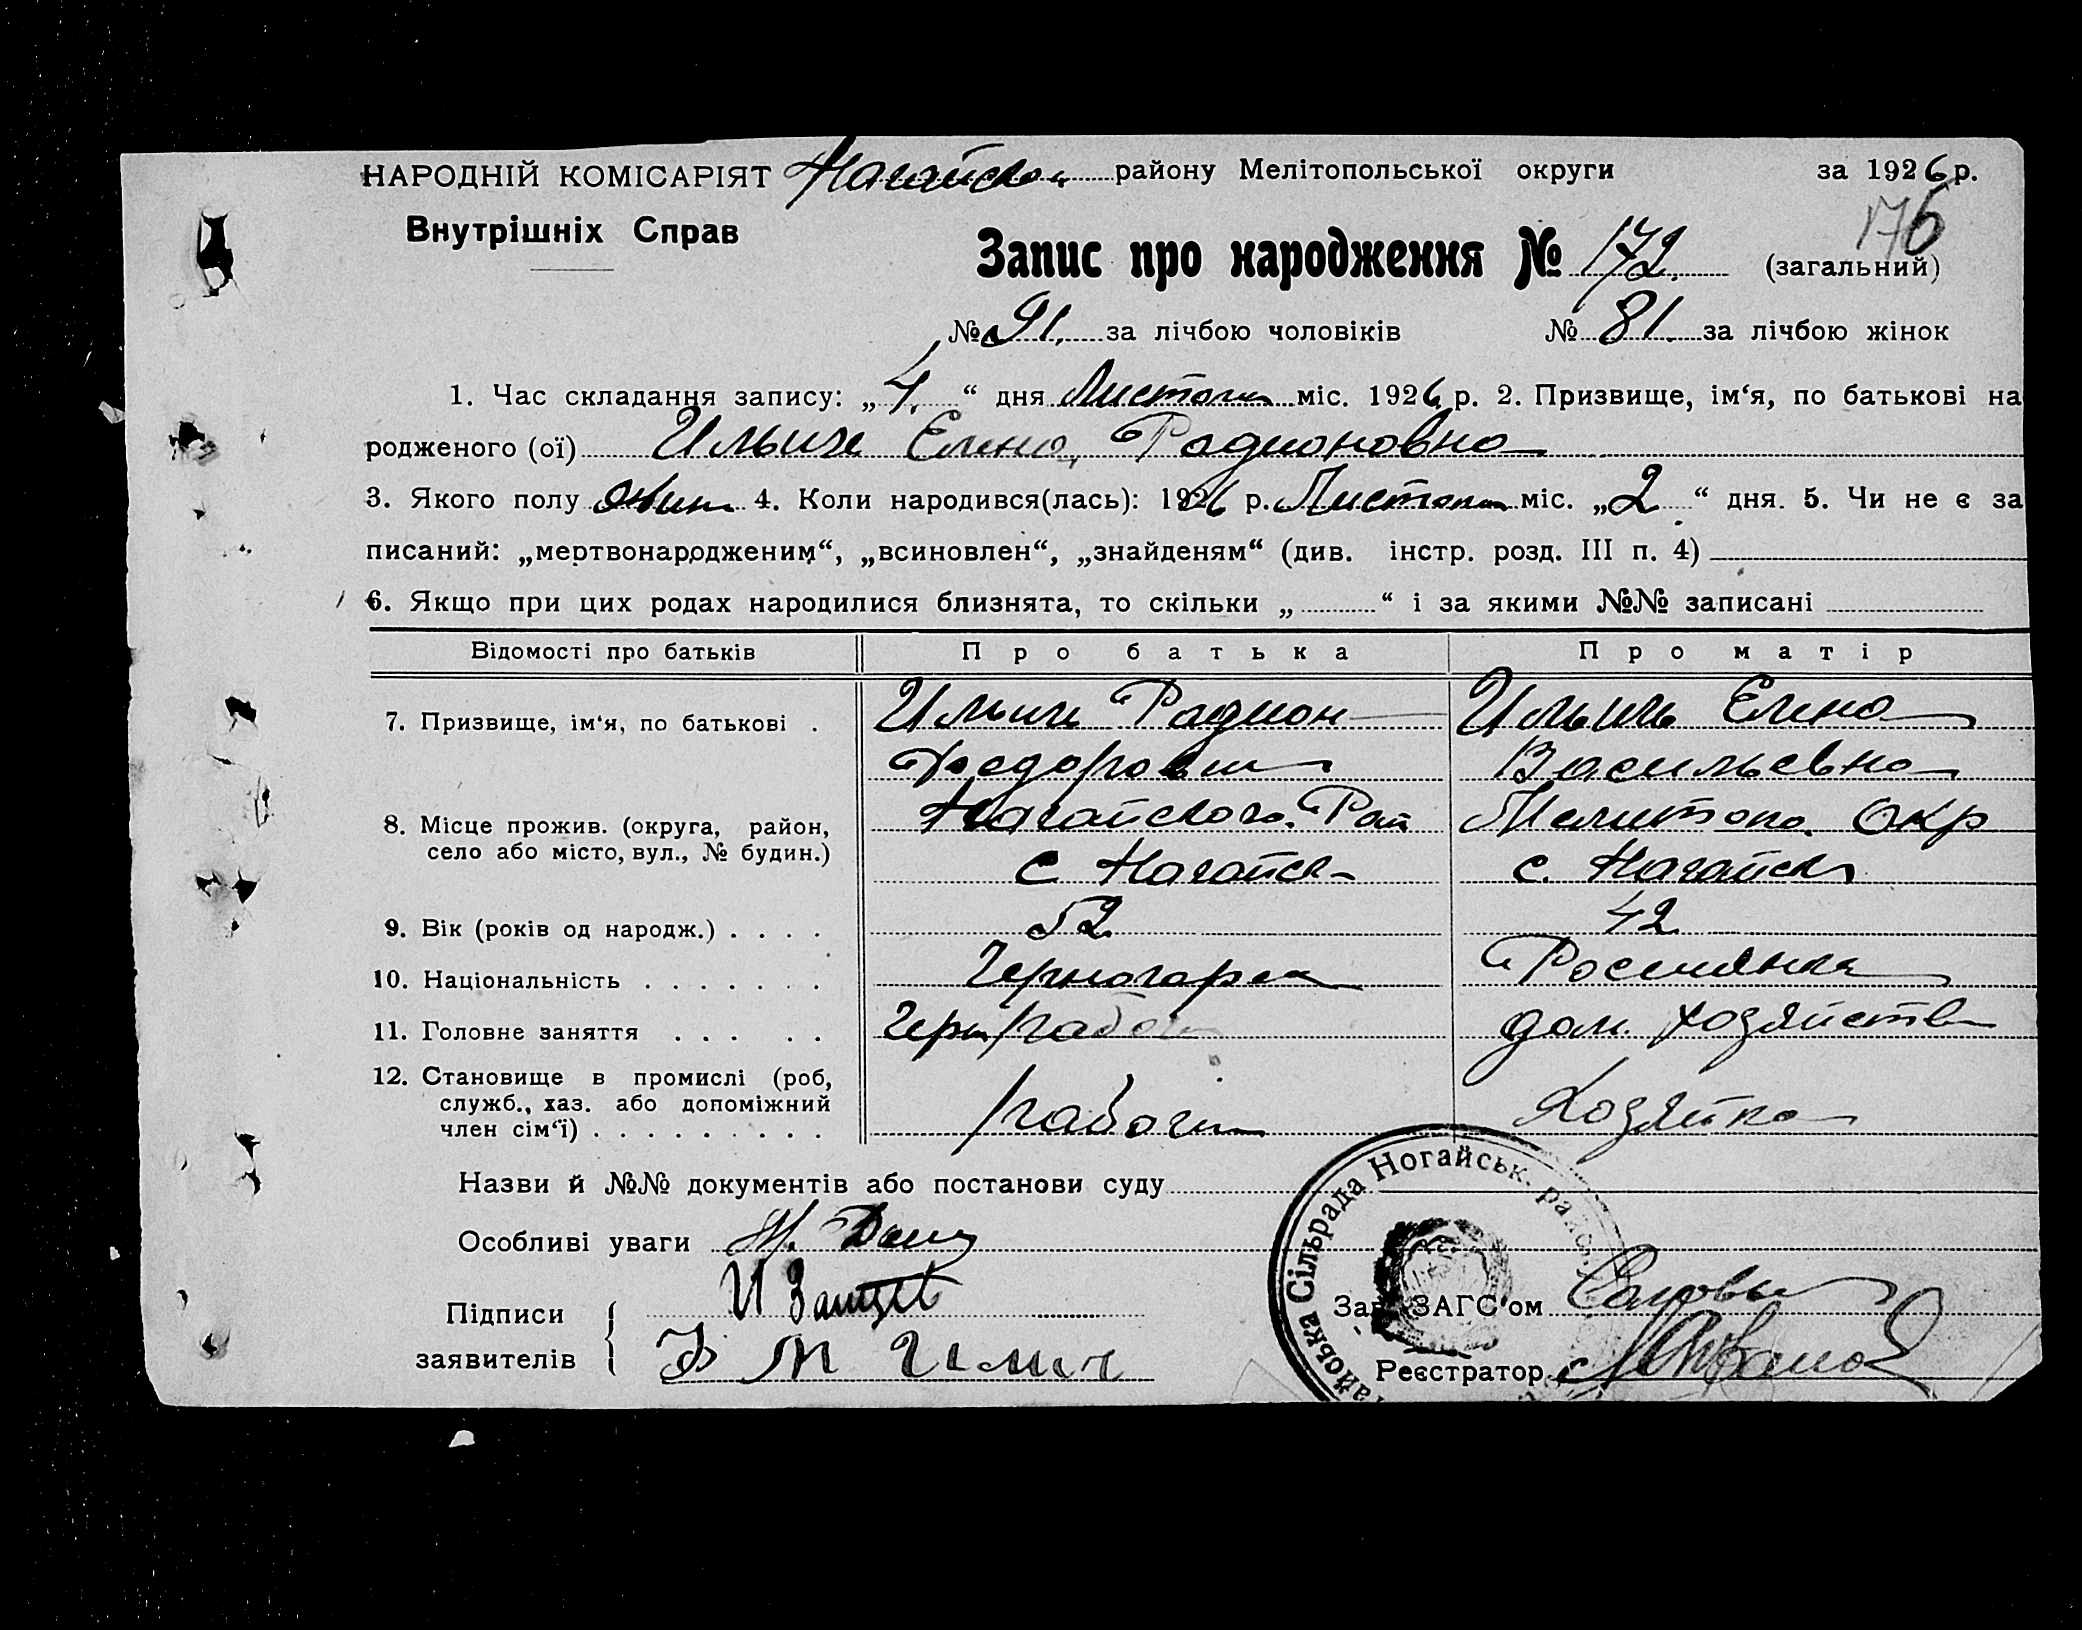 НАРОДНІЙ КОМІСАРІЯТ Нагайско району Мелітопольської округи за 1926 р.
176
Внутрішніх Справ
Запис про народження № 172. (загальний)
№ 91. за лічбою чоловіків № 81. за лічбою жінок
1. Час складання запису: „4.“ дня Листопа міс. 1926 р. 2. Призвище, ім‘я, по батькові на
родженого (ої) Ильич Елена Радионовна
3. Якого полу жин 4. Коли народився(лась): 1926 р. Листопа міс. „2“ дня. 5. Чи не є за
писаний: „мертвонародженим“, „всиновлен“, „знайденям“ (див. інстр. розд. III п. 4)
6. Якщо при цих родах народилися близнята, то скільки „ “ і за якими №№ записані
Відомості про батьків Про батька Про матір
7. Призвище, ім‘я, по батькові . Ильич Радион Ильич Елена
Федорович Васильевна
8. Місце прожив. (округа, район, Нагайского Рай Мелитопо. Окр
село або місто, вул., № будин.) с Нагайск с. Нагайск
9. Вік (років од народж.) . . . . 52 42
10. Національність . . . . . . . Черногорец Россиянка
11. Головне заняття . . . . . Черн рабоч дом. хозяйств
12. Становище в промислі (роб,
служб., хаз. або допоміжний
член сім‘ї) . . . . . . . . . рабочи Хозяйка
Назви й №№ документів або постанови суду
Особливі уваги
Підписи
заявителів Ильич
Зав. ЗАГС‘ом
Реєстратор
Сільрада Ногайськ. район